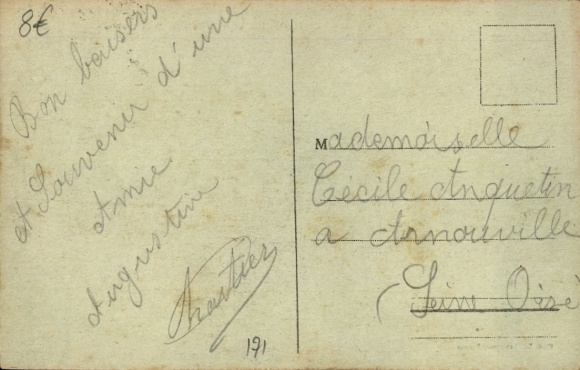 8€
Bon baisers
et Souvenir d'une
Amie
Augustine
Chartier
191
Mademoiselle
Cécile Anquetin
a Arnouville
(Seine Oise